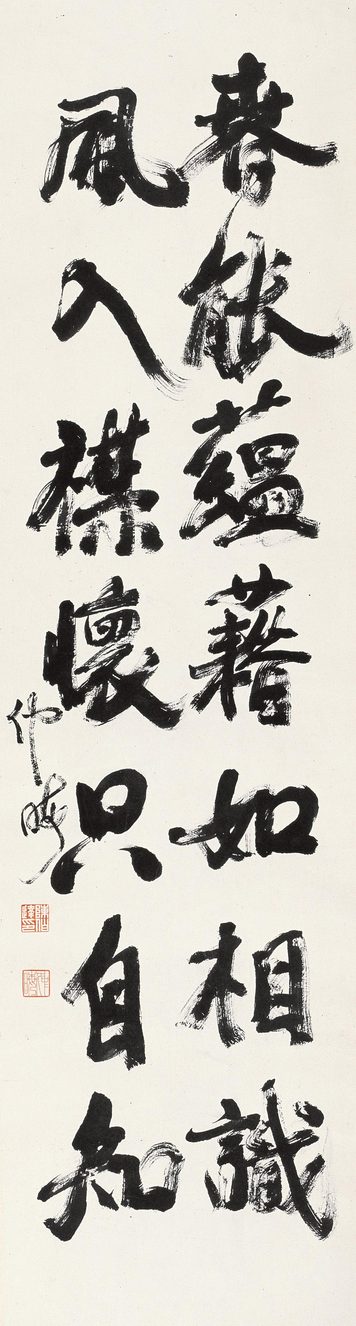 春能蘊藉如相識
風入襟懷只自知